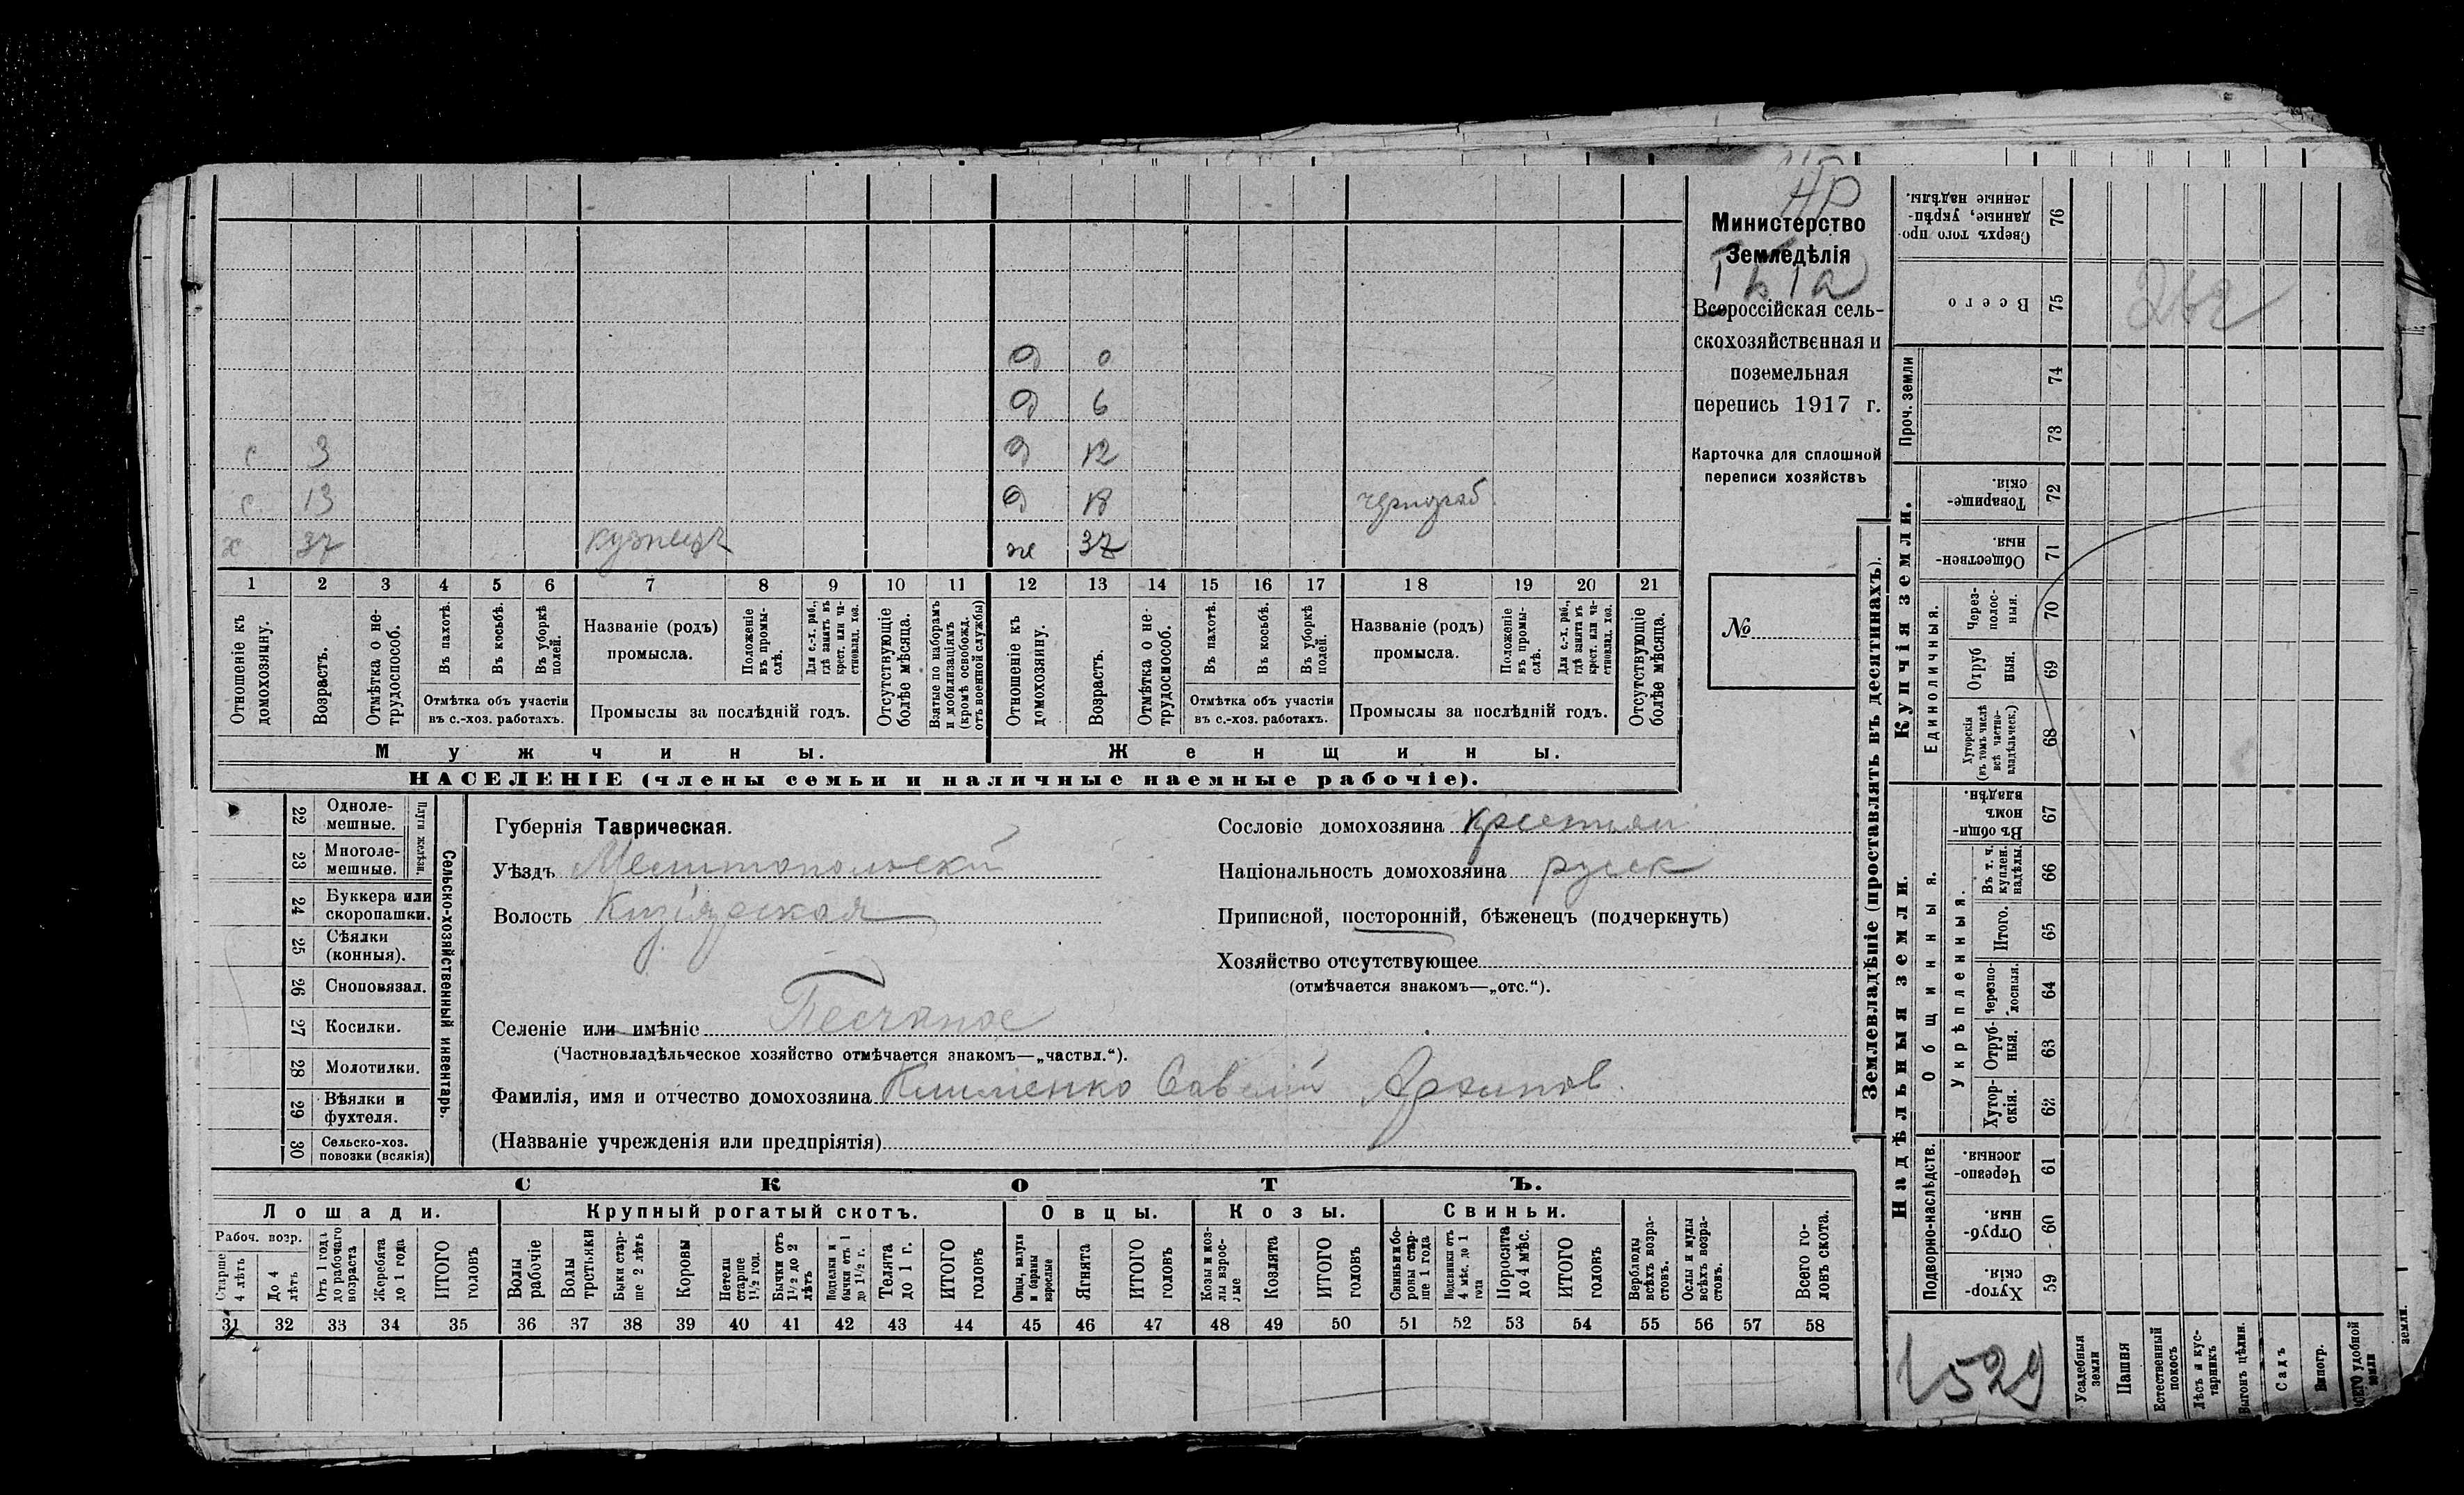 НР
Министерство
Земледѣлія
Всероссійская сель-
скохозяйственная и
поземельная
перепись 1917 г.
Карточка для сплошной
переписи хозяйствъ
№
д 0
д 6
с 3 д 12
с 13 д 18 чернораб.
х 37 кузнецъ ж 37
1 2 3 4 5 6 7 8 9 10 11 12 13 14 15 16 17 18 19 20 21
Отношеніе къ домохозяину.
Возрастъ.
Отмѣтка о не-трудоспособ.
Въ пахотѣ.
Въ косьбѣ.
Въ уборкѣ полей.
Отмѣтка объ участіи
въ с.-хоз. работахъ.
Названіе (родъ)
промысла.
Положеніе въ промы-слѣ.
Для с.-х. раб., гдѣ занятъ въ крест. или ча-стновлад. хоз.
Промыслы за послѣдній годъ.
Отсутствующіе болѣе мѣсяца.
Взятые по наборамъ и мобилизаціямъ (кромѣ освобожд. отъ военной службы)
Отношеніе къ домохозяину.
Возрастъ.
Отмѣтка о не-трудоспособ.
Въ пахотѣ.
Въ косьбѣ.
Въ уборкѣ полей.
Отмѣтка объ участіи
въ с.-хоз. работахъ.
Названіе (родъ)
промысла.
Положеніе въ промы-слѣ.
Для с.-х. раб., гдѣ занята въ крест. или ча-стновлад. хоз.
Промыслы за послѣдній годъ.
Отсутствующіе болѣе мѣсяца.
Мужчины. Женщины.
НАСЕЛЕНІЕ (члены семьи и наличные наемные рабочіе).
22 Одноле-мешные.
23 Многоле-мешные.
Плуги желѣзн.
24 Буккера или скоропашки.
25 Сѣялки (конныя).
26 Сноповязал.
27 Косилки.
28 Молотилки.
29 Вѣялки и фухтеля.
30 Сельско-хоз. повозки (всякія)
Сельско-хозяйственный инвентарь.
Губернія Таврическая.
Уѣздъ Мелитопольскій
Волость Кизіярская
Селеніе или имѣніе Песчаное
(Частновладѣльческое хозяйство отмѣчается знакомъ—„частвл.“).
Фамилія, имя и отчество домохозяина Клименко Савелій Архипов.
(Названіе учрежденія или предпріятія)
Сословіе домохозяина крестьян
Національность домохозяина русск
Приписной, посторонній, бѣженецъ (подчеркнуть)
Хозяйство отсутствующее
(отмѣчается знакомъ—„отс.“).
СКОТЪ.
Лошади. Крупный рогатый скотъ. Овцы. Козы. Свиньи.
Рабоч. возр.
Старше 4 лѣтъ
До 4 лѣтъ
Отъ 1 года до рабочаго возраста
Жеребята до 1 года
ИТОГО головъ
Волы рабочіе
Волы третьяки
Быки стар-ше 2 лѣтъ
Коровы
Нетели старше 1½ год.
Бычки отъ 1½ до 2 лѣтъ
Подтелки и бычки отъ 1 до 1½ г.
Телята до 1 г.
ИТОГО головъ
Овцы, валухи и бараны взрослые
Ягнята
ИТОГО головъ
Козы и коз-лы взрос-лые
Козлята
ИТОГО головъ
Свиньи и бо-ровы стар-ше 1 года
Подсвинки отъ 4 мѣс. до 1 года
Поросята до 4 мѣс.
ИТОГО головъ
Верблюды всѣхъ возра-стовъ.
Ослы и мулы всѣхъ возра-стовъ.
Всего го-ловъ скота.
31 32 33 34 35 36 37 38 39 40 41 42 43 44 45 46 47 48 49 50 51 52 53 54 55 56 57 58
Землевладѣніе (проставлять въ десятинахъ).
Надѣльныя земли.
Подворно-наслѣдств.
Хутор-скія. 59
Отруб-ныя. 60
Черезпо-лосныя. 61
Общинныя.
Укрѣпленныя.
Хутор-скія. 62
Отруб-ныя. 63
Черезпо-лосныя. 64
Итого. 65
Въ т. ч. куплен. надѣлы. 66
Въ общин-номъ владѣн. 67
Купчія земли.
Единоличныя.
Хуторскія (въ томъ числѣ всѣ частно-владѣльческ.) 68
Отруб ныя. 69
Через-полос-ныя. 70
Обществен-ныя. 71
Товарище-скія. 72
Проч. земли
73
74
Всего 75
Сверхъ того про-данные, укрѣп-ленные надѣлы. 76
1529
Усадебныя земли
Пашня
Естественный покосъ
Лѣсъ и кус-тарникъ
Выгонъ цѣлин.
Садъ
Виногр.
земли.